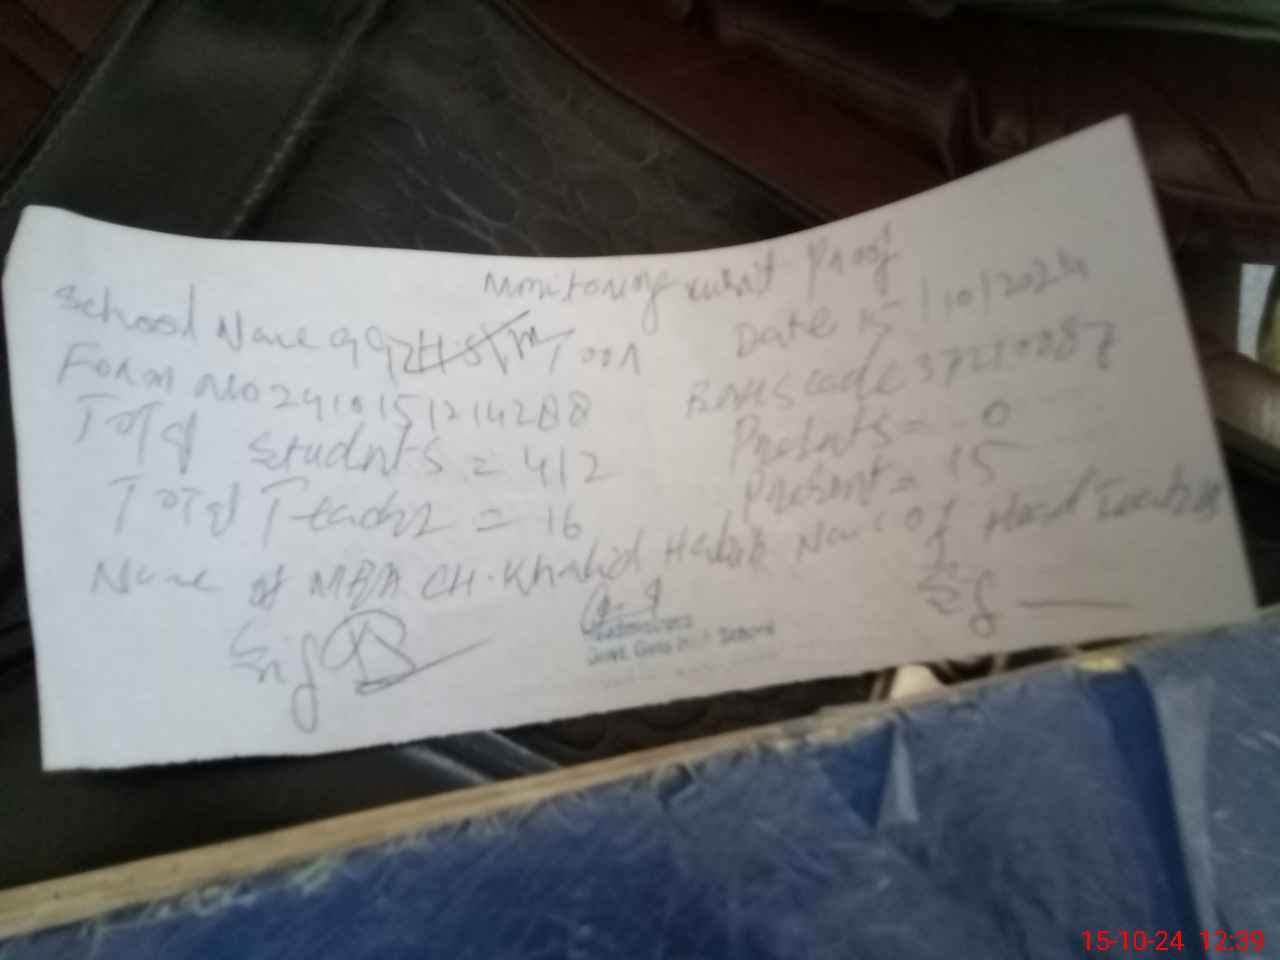 Monitoring visit Proof
School Name GGHS Toor Date 15/10/2024
Form No 2410151214288 Bmiscode 37210087
Total Studnts = 412 Presnts = 0
Total Teacher = 16 Present = 15
Name of MEA CH. Khalid Name of Head Teacher
Sig Sig
Govt. Girls School
15-10-24 12:39